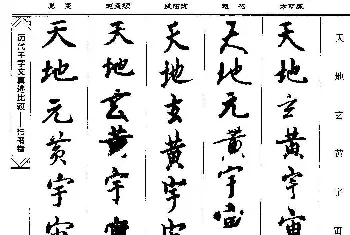 天地玄黄宇宙
天地玄黄宇宙
天地元黄宇宙
天地玄黄宇宙
天地玄黄宇宙
天地元黄宇宙
历代千字文真迹比较